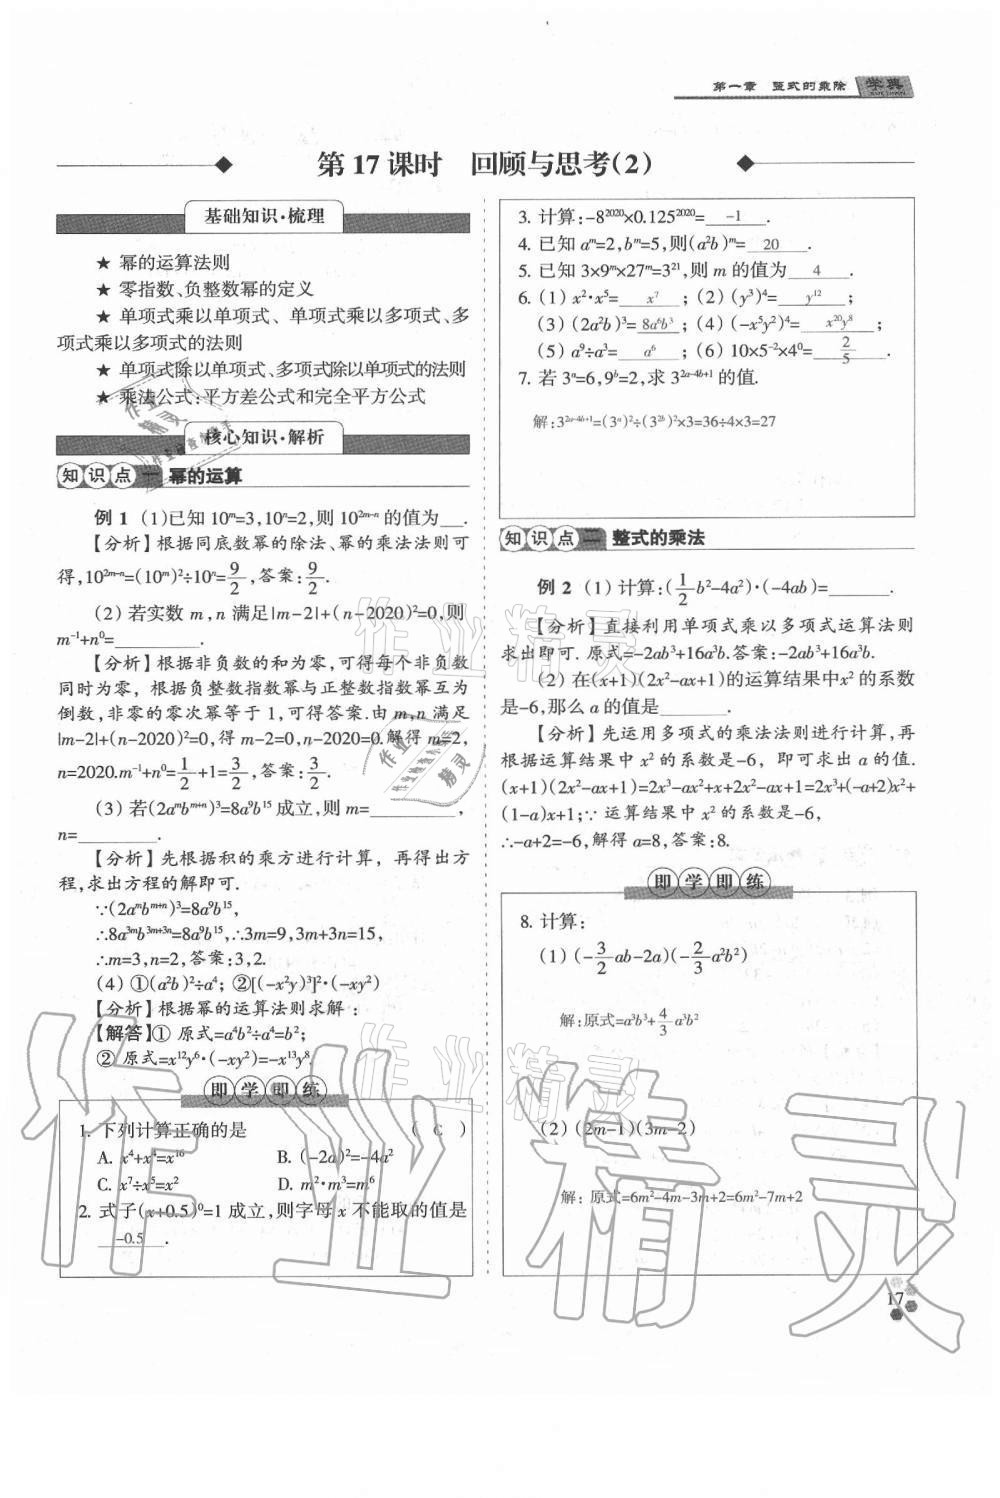 第一章 整式的乘除 学典
第 17 课时 回顾与思考(2)
基础知识·梳理
★ 幂的运算法则
★ 零指数、负整数幂的定义
★ 单项式乘以单项式、单项式乘以多项式、多
项式乘以多项式的法则
★ 单项式除以单项式、多项式除以单项式的法则
★ 乘法公式:平方差公式和完全平方公式
核心知识·解析
知识点一 幂的运算
例 1 (1)已知 10ᵐ=3,10ⁿ=2,则 10²ᵐ⁻ⁿ 的值为__.
【分析】根据同底数幂的除法、幂的乘法法则可
得,10²ᵐ⁻ⁿ=(10ᵐ)²÷10ⁿ=9/2,答案:9/2.
(2) 若实数 m,n 满足|m-2|+(n-2020)²=0,则
m⁻¹+n⁰=________.
【分析】根据非负数的和为零,可得每个非负数
同时为零，根据负整数指数幂与正整数指数幂互为
倒数,非零的零次幂等于 1,可得答案.由 m,n 满足
|m-2|+(n-2020)²=0,得 m-2=0,n-2020=0.解得 m=2,
n=2020.m⁻¹+n⁰=1/2+1=3/2,答案:3/2.
(3) 若(2aᵐbᵐ⁺ⁿ)³=8a⁹b¹⁵成立,则 m=________,
n=________.
【分析】先根据积的乘方进行计算，再得出方
程,求出方程的解即可.
∵(2aᵐbᵐ⁺ⁿ)³=8a⁹b¹⁵,
∴8a³ᵐb³ᵐ⁺³ⁿ=8a⁹b¹⁵,∴3m=9,3m+3n=15,
∴m=3,n=2,答案:3,2.
(4) ①(a²b)²÷a⁴; ②[(-x²y)³]²·(-xy²)
【分析】根据幂的运算法则求解：
【解答】① 原式=a⁴b²÷a⁴=b²;
② 原式=x¹²y⁶·(-xy²)=-x¹³y⁸.
即学即练
1. 下列计算正确的是 ( C )
A. x⁴+x⁴=x¹⁶ B. (-2a)²=-4a²
C. x⁷÷x⁵=x² D. m²·m³=m⁶
2. 式子(x+0.5)⁰=1 成立,则字母 x 不能取的值是
-0.5 .
3. 计算:-8²⁰²⁰×0.125²⁰²⁰= -1 .
4. 已知 aᵐ=2,bᵐ=5,则(a²b)ᵐ= 20 .
5. 已知 3×9ᵐ×27ᵐ=3²¹,则 m 的值为 4 .
6. (1) x²·x⁵= x⁷ ; (2) (y³)⁴= y¹² ;
(3) (2a²b)³= 8a⁶b³ ; (4) (-x⁵y²)⁴= x²⁰y⁸ ;
(5) a⁹÷a³= a⁶ ; (6) 10×5⁻²×4⁰= 2/5 .
7. 若 3ᵃ=6,9ᵇ=2,求 3²ᵃ⁻⁴ᵇ⁺¹ 的值.
解:3²ᵃ⁻⁴ᵇ⁺¹=(3ᵃ)²÷(3²ᵇ)²×3=36÷4×3=27
知识点二 整式的乘法
例 2 (1) 计算:(1/2b²-4a²)·(-4ab)=______.
【分析】直接利用单项式乘以多项式运算法则
求出即可. 原式=-2ab³+16a³b.答案:-2ab³+16a³b.
(2) 在(x+1)(2x²-ax+1)的运算结果中x²的系数
是-6,那么 a 的值是______.
【分析】先运用多项式的乘法法则进行计算,再
根据运算结果中 x² 的系数是-6，即可求出 a 的值.
(x+1)(2x²-ax+1)=2x³-ax²+x+2x²-ax+1=2x³+(-a+2)x²+
(1-a)x+1;∵ 运算结果中 x² 的系数是-6,
∴-a+2=-6,解得 a=8,答案:8.
即学即练
8. 计算:
(1) (-3/2ab-2a)(-2/3a²b²)
解:原式=a³b³+4/3a³b²
(2) (2m-1)(3m-2)
解: 原式=6m²-4m-3m+2=6m²-7m+2
17
作业精灵
作业精灵
作业精灵